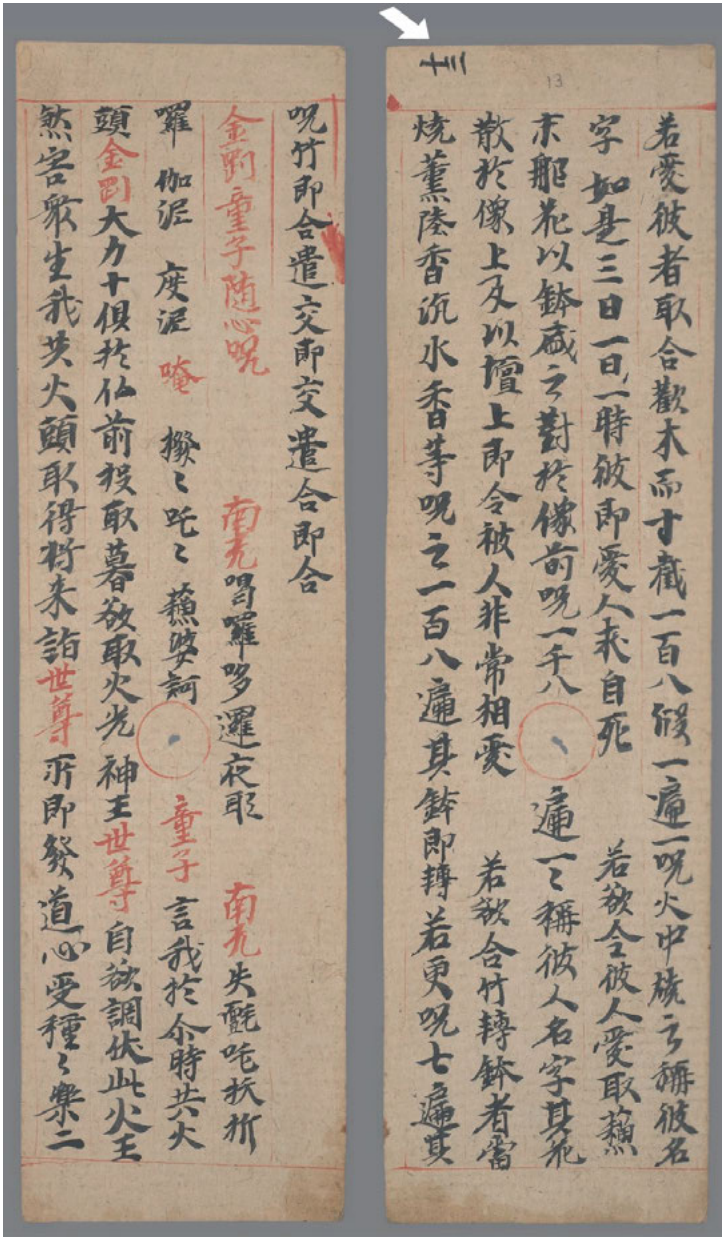 十三
13
若愛彼者取合歡木而寸截一百八段一遍一呪火中燒之稱彼名
字如是三日一日一時彼即愛人求自死 若欲令彼人愛取蘓
末那花以鉢盛之對於像前呪一千八 遍一〻稱彼人名字其花
散於像上及以壇上即令被人非常相愛 若欲合竹轉鉢者當
燒薰陸香沉水香等呪之一百八遍其鉢即轉若更呪七遍其
呪竹即合遣交即交遣合即合
金剛童子随心呪 南无喝囉哆邏夜耶 南无失氈吒扶折
囉 伽泥 度泥 唵 撥〻吒〻 蘓婆訶
童子 言我於尒時共火
頭金剛大力十俱於仏前投取暮欲取火光 神王世尊自欲調伏此火王
煞害衆生我共火頭取得将来詣世尊所即發道心受種〻樂二